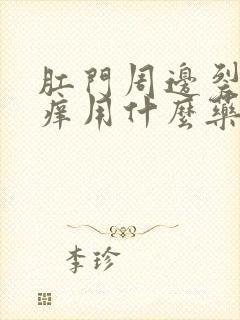 肛門周邊裂
痒用什麼藥
李珍